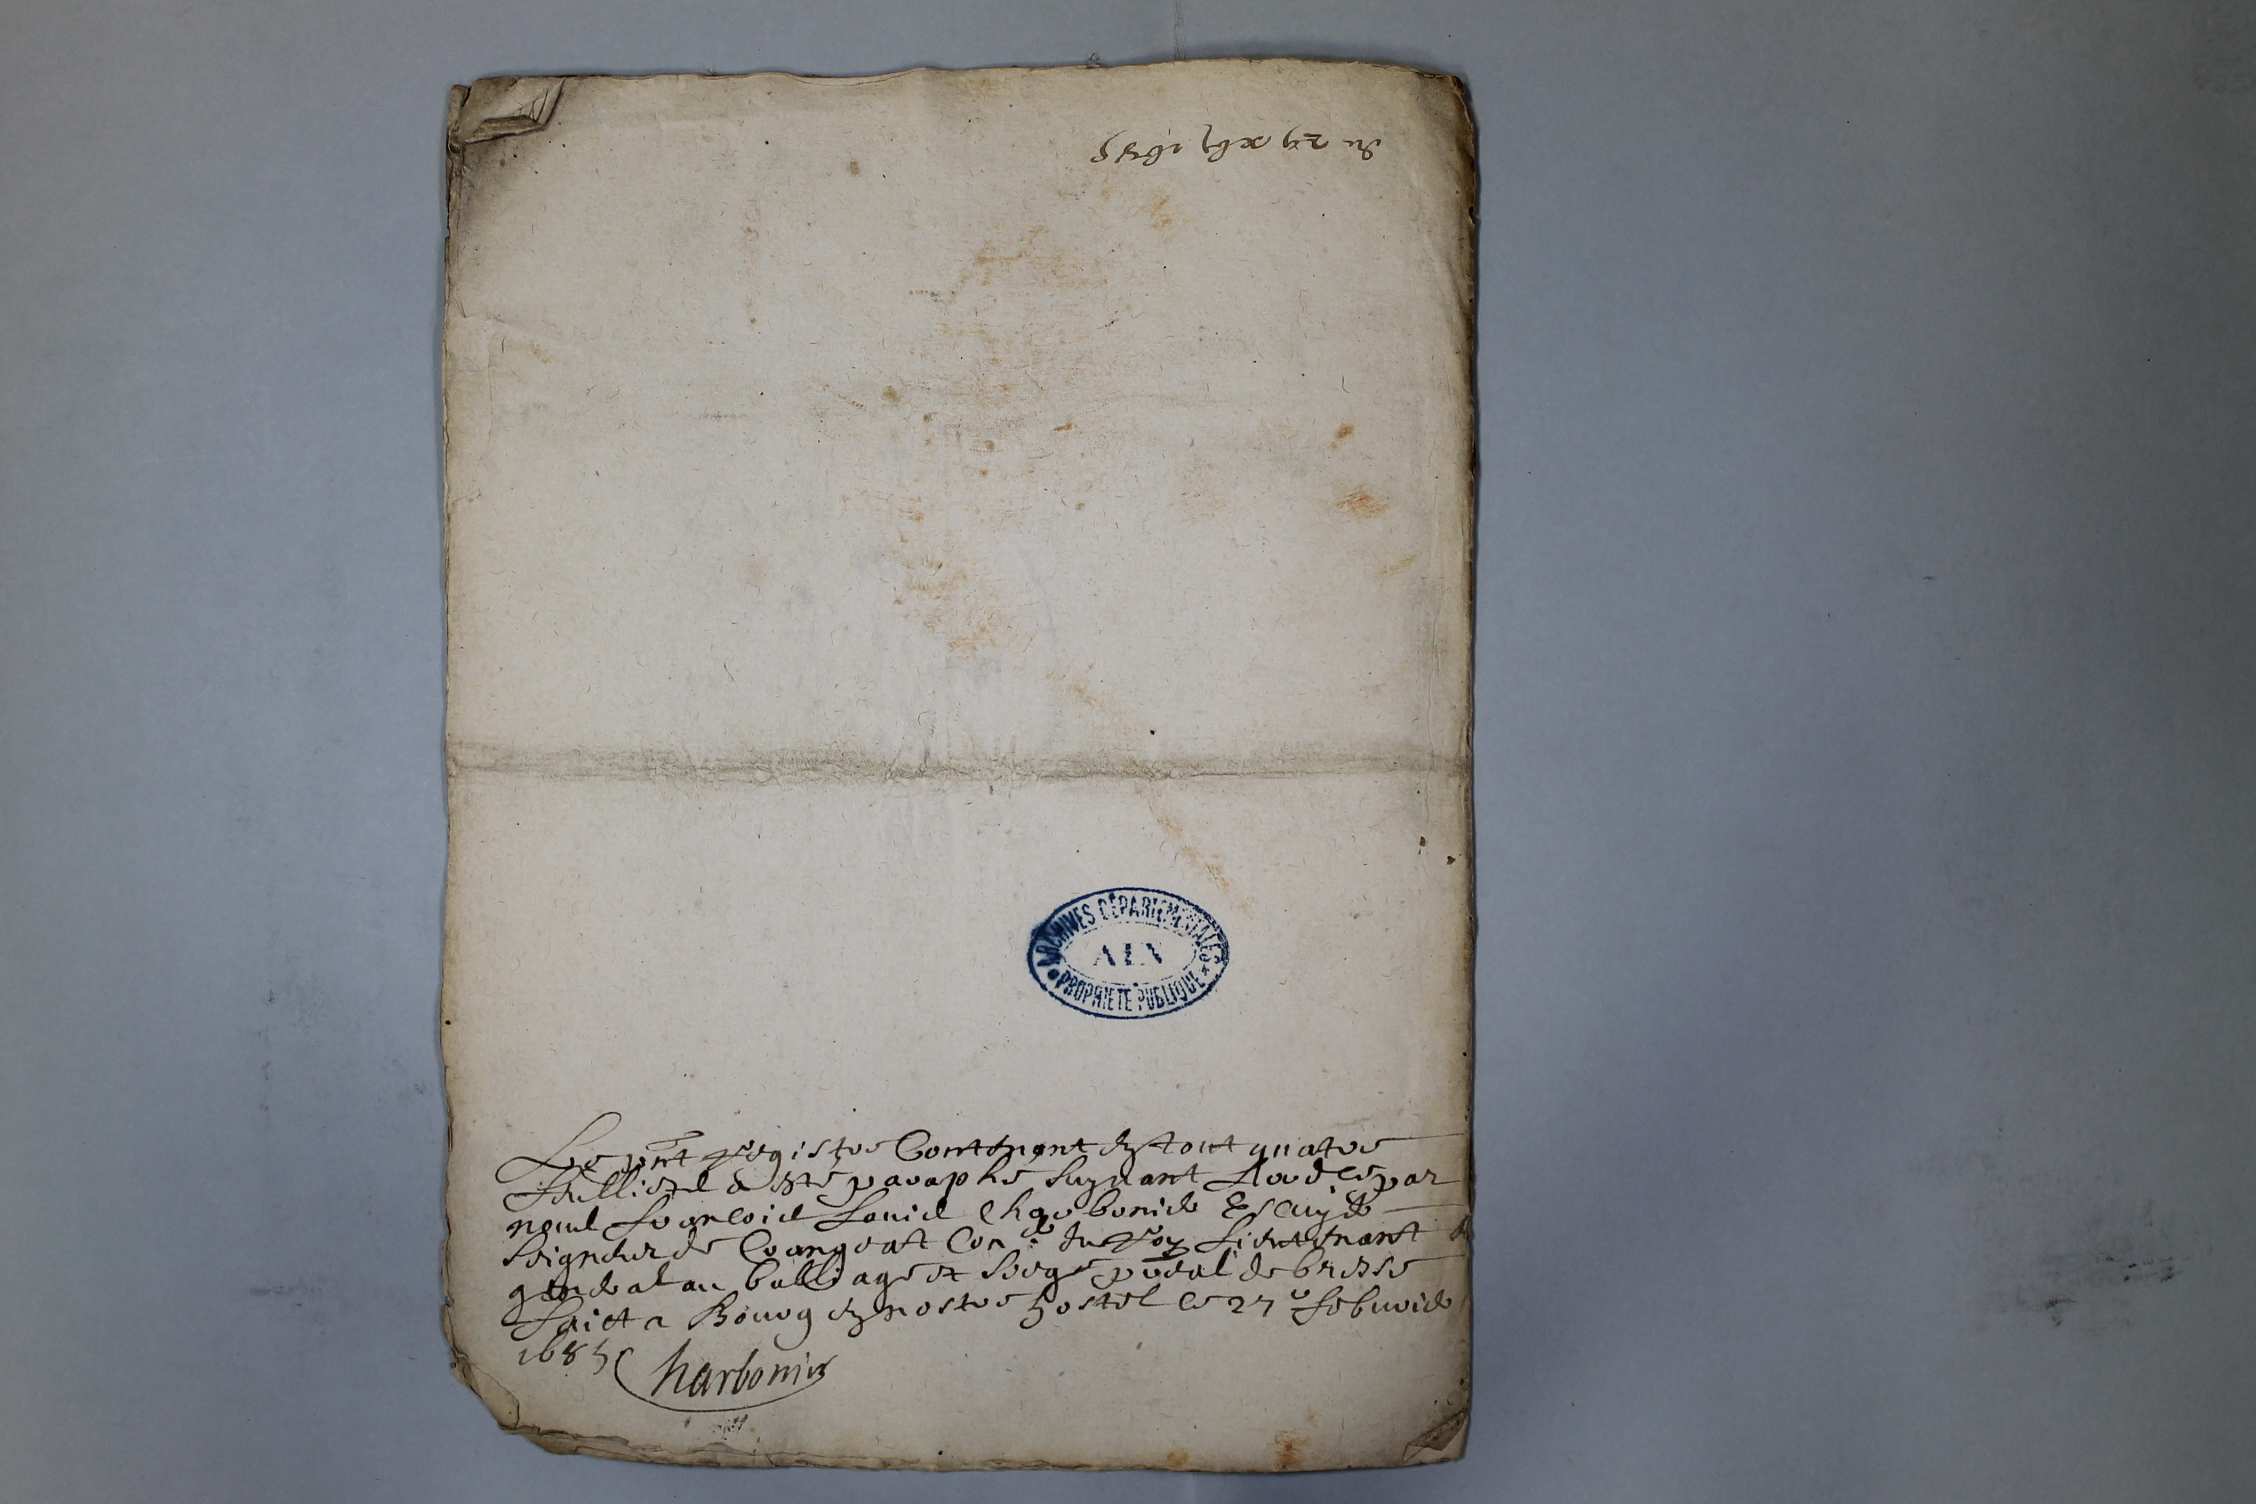 ARCHIVES DÉPARTEMENTALES
AIN
PROPRIÉTÉ PUBLIQUE
Le pnt registre Contenant en tout quatre
feullietz a esté paraphé suyuant par
nous francois Louis Charbonier Escuyer
Seigneur de Crangeat Con.er du Roy Lieutenant
general au balliage et siege pñdal de bresse
faict a Bourg en nostre hostel le 27e febvrier
1685 Charbonier